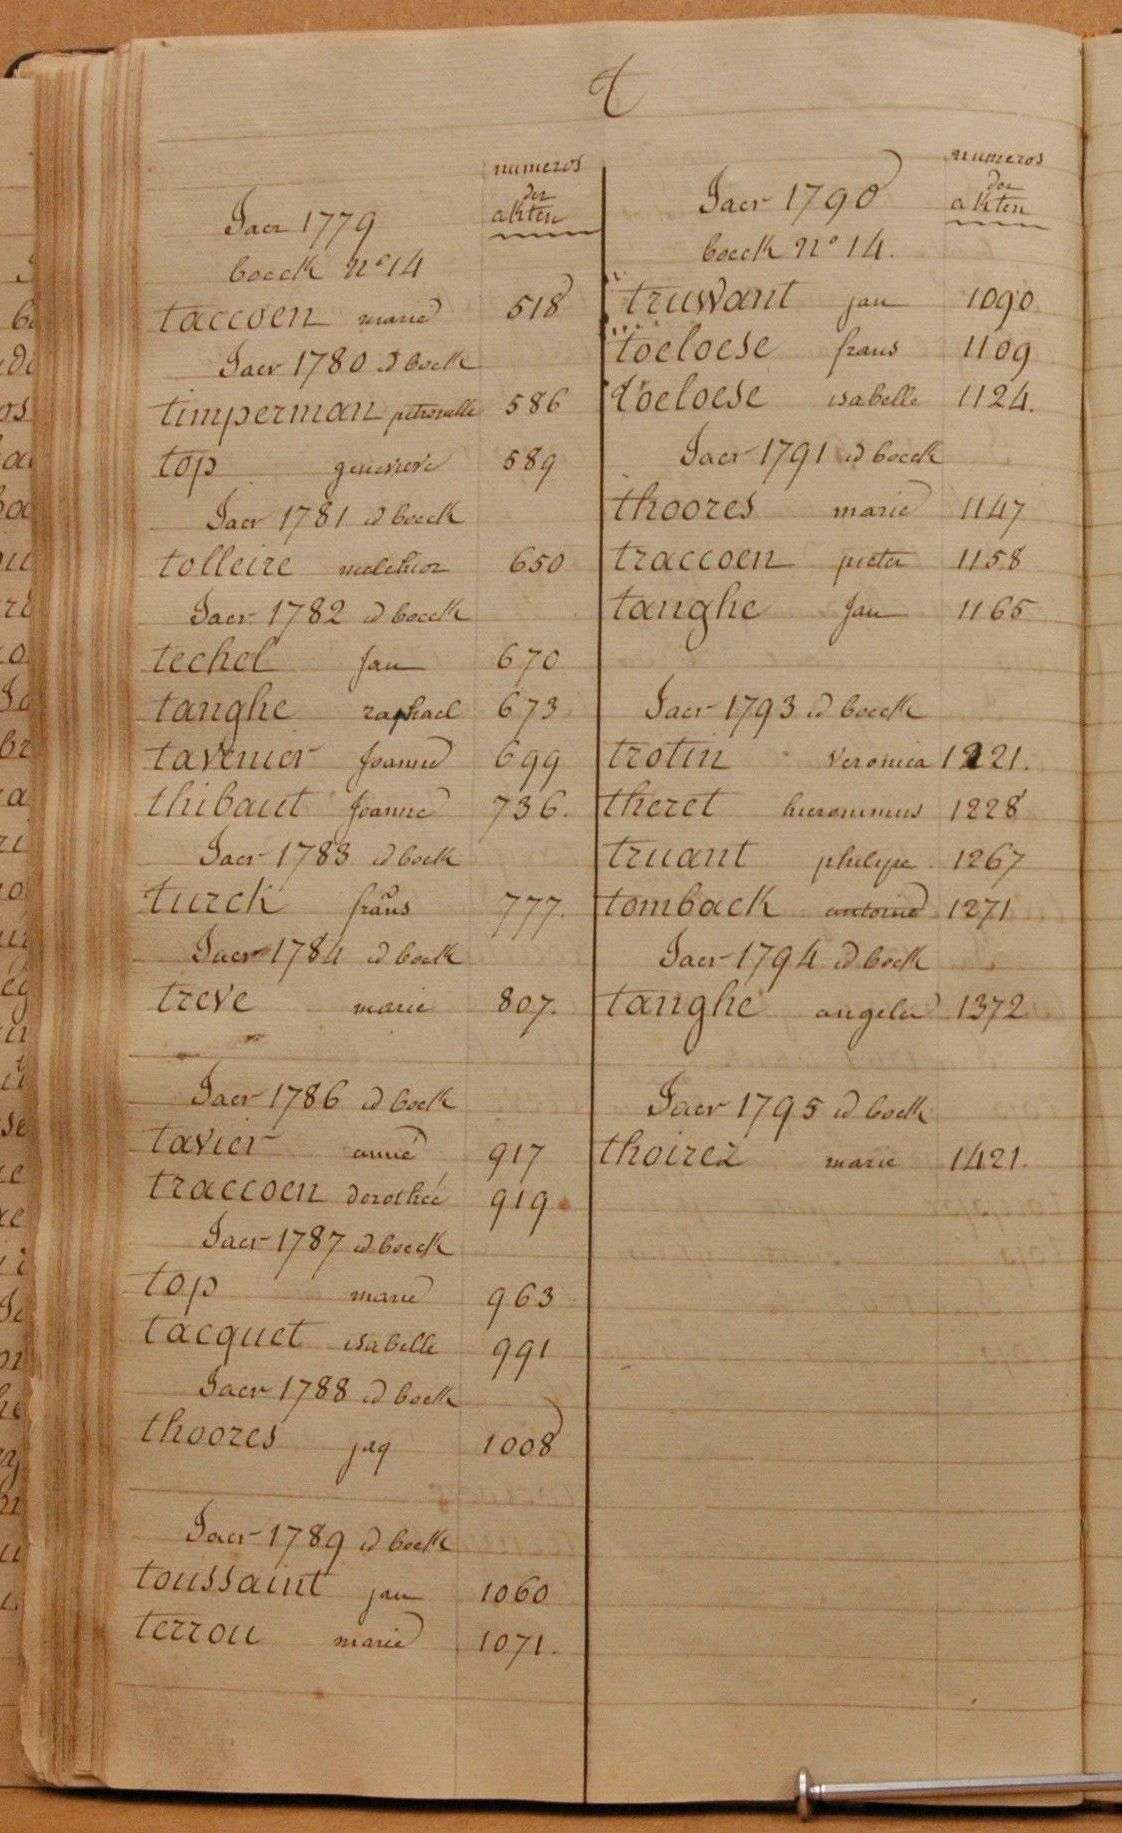 T
numeros
der
akten
Jaer 1779
boeck n° 14
taccoen marie 518
Jaer 1780 id boek
timperman petronelle 586
top genevieve 589
Jaer 1781 id boeck
tolleire melchior 650
Jaer 1782 id boeck
techel Jan 670
tanghe raphael 673
tavenier Joanne 699
thibaut Joanne 736.
Jaer 1783 id boek
turck frans 777.
Jaer 1784 id boek
treve marie 807.
Jaer 1786 id boek
tavier anné 917
traccoen dorothée 919
Jaer 1787 id boeck
top marie 963
tacquet isabelle 991
Jaer 1788 id boek
thoores jaq 1008
Jaer 1789 id boek
toussaint jan 1060
terrou marie 1071.
numeros
der
akten
Jaer 1790
boeck n° 14.
truwant jan 1090
toeloese frans 1109
toeloese isabelle 1124.
Jaer 1791 id boeck
thoores marie 1147
traccoen pieter 1158
tanghe Jan 1165
Jaer 1793 id boeck
trotin veronica 1221.
theret hieronimus 1228
truant philype 1267
tomback antoine 1271
Jaer 1794 id boek
tanghe angela 1372
Jaer 1795 id boek
thoirez marie 1421.